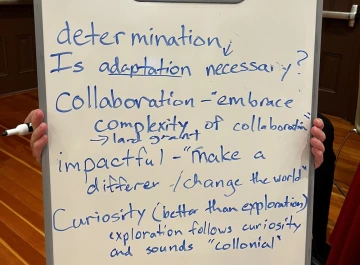 determination
Is adaptation necessary?
Collaboration - "embrace
complexity of collaboration"
→ land grant
impactful - "make a
differ - /change the world"
Curiosity (better than exploration)
exploration follows curiosity
and sounds "collonial"